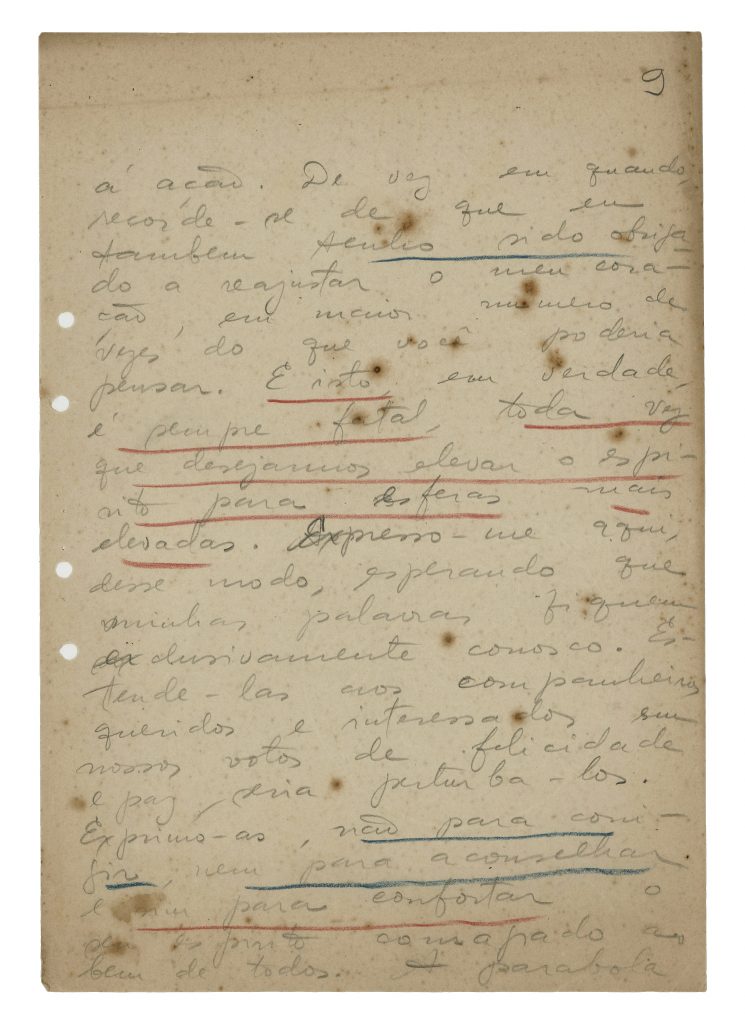 9
á ação. De vez em quando,
recorde-se de que eu
tambem tenho sido obriga
do a reajustar o meu cora-
ção, em maior numero de
vezes do que você poderia
pensar. E isto, em verdade,
é sempre fatal, toda vez
que desejamos elevar o espi-
rito para esferas mais
elevadas. Expresso-me aqui,
desse modo, esperando que
minhas palavras fiquem
exclusivamente conosco. Es-
tende-las aos companheiros
queridos e interessados em
nossos votos de felicidade
e paz, seria perturba-los.
Exprimo-as, não para corri-
gir, nem para aconselhar
e sim para confortar o
seu espirito consagrado ao
bem de todos. A parabola